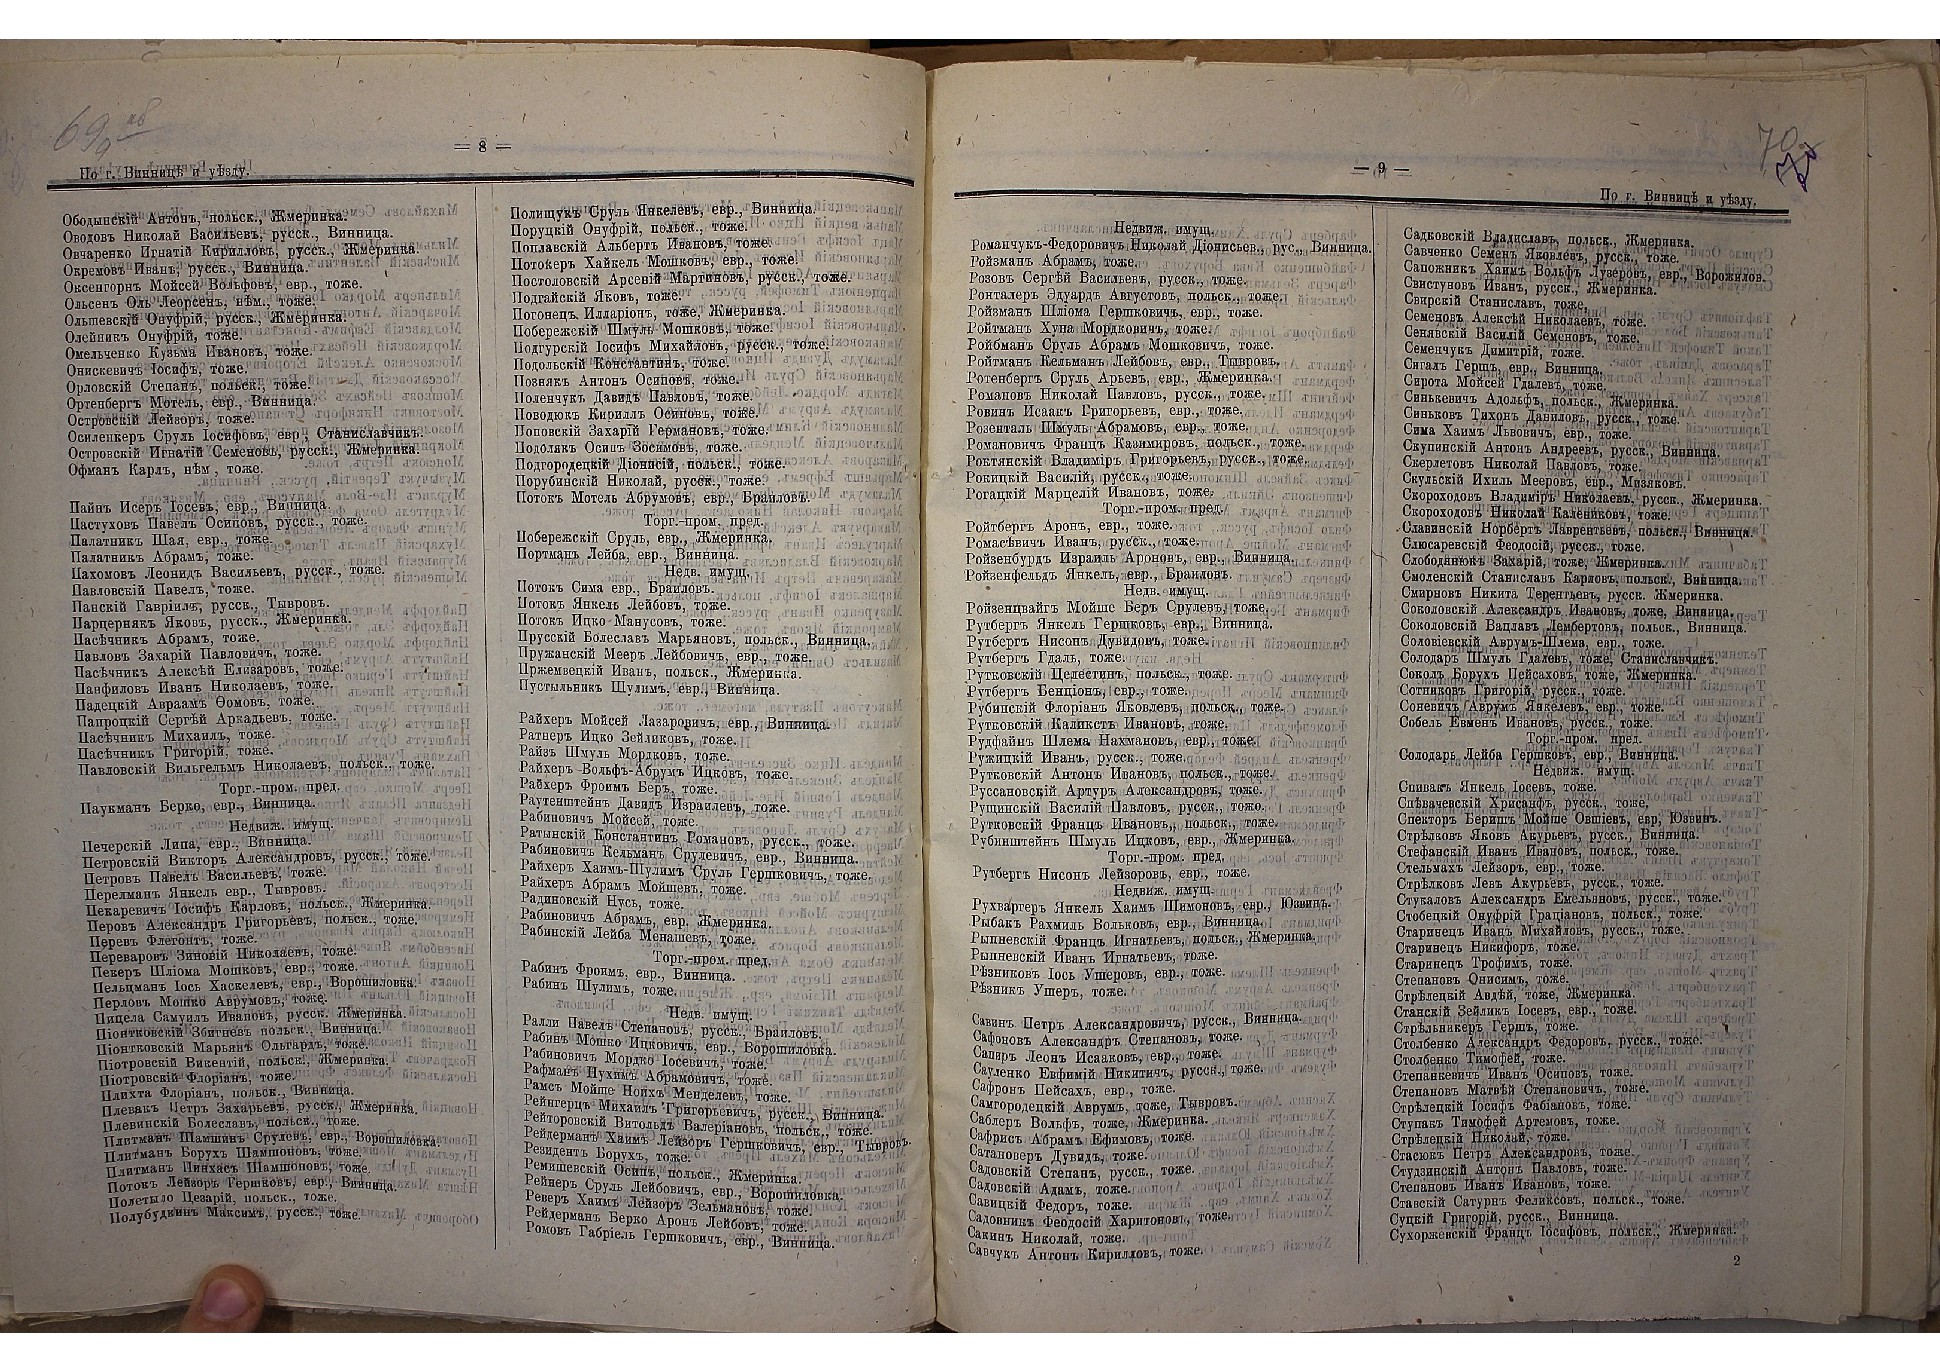 69 об
9
— 8 —
По г. Винницѣ и уѣзду.
Ободынскій Антонъ, польск., Жмеринка.
Оводовъ Николай Васильевъ, русск., Винница.
Овчаренко Игнатій Кирилловъ, русск., Жмеринка.
Окремовъ Иванъ, русск., Винница.
Оксенгорнъ Мойсей Вольфовъ, евр., тоже.
Ольсенъ Оль Леорсенъ, нѣм., тоже.
Ольшевскій Онуфрій, русск., Жмеринка.
Олейникъ Онуфрій, тоже.
Омельченко Кузьма Ивановъ, тоже.
Онискевичъ Іосифъ, тоже.
Орловскій Степанъ, польск., тоже.
Ортенбергъ Мотель, евр., Винница.
Островскій Лейзоръ, тоже.
Осиленкеръ Сруль Іосифовъ, евр., Станиславчик.
Островскій Игнатій Семеновъ, русск., Жмеринка.
Офманъ Карлъ, нѣм., тоже.
Пайнъ Исеръ Іосевъ, евр., Винница.
Пастуховъ Павелъ Осиповъ, русск., тоже.
Палатникъ Шая, евр., тоже.
Палатникъ Абрамъ, тоже.
Пахомовъ Леонидъ Васильевъ, русск., тоже.
Павловскій Павелъ, тоже.
Панскій Гавріилъ, русск., Тывровъ.
Парцернякъ Яковъ, русск., Жмеринка.
Пасѣчникъ Абрамъ, тоже.
Павловъ Захарій Павловичъ, тоже.
Пасѣчникъ Алексѣй Елизаровъ, тоже.
Панфиловъ Иванъ Николаевъ, тоже.
Падецкій Авраамъ Ѳомовъ, тоже.
Папроцкій Сергѣй Аркадьевъ, тоже.
Пасѣчникъ Михаилъ, тоже.
Пасѣчникъ Григорій, тоже.
Павловскій Вильгельмъ Николаевъ, польск., тоже.
Торг.-пром. пред.
Паукманъ Берко, евр., Винница.
Недвиж. имущ.
Печерскій Липа, евр., Винница.
Петровскій Викторъ Александровъ, русск., тоже.
Петровъ Павелъ Васильевъ, тоже.
Перелманъ Янкель евр., Тывровъ.
Пекаревичъ Іосифъ Карловъ, польск., Жмеринка.
Перовъ Александръ Григорьевъ, польск., тоже.
Перевъ Флегонтъ, тоже.
Переваровъ Зиновій Николаевъ, тоже.
Пекеръ Шліома Мошковъ, евр., тоже.
Пельцманъ Іось Хаскелевъ, евр., Ворошиловка.
Перловъ Мошко Аврумовъ, тоже.
Пицела Самуилъ Ивановъ, русск. Жмеринка.
Піонтковскій Збигневъ польск., Винница.
Піонтковскій Марьянъ Ольгардъ, тоже.
Піотровскій Викентій, польск., Жмеринка.
Піотровскій Флоріанъ, тоже.
Плихта Флоріанъ, польск., Винница.
Плевакъ Петръ Захарьевъ, русск., Жмеринка.
Плевинскій Болеславъ, польск., тоже.
Плитманъ Шамшинъ Срулевъ, евр., Ворошиловка.
Плитманъ Борухъ Шамшоновъ, тоже.
Плитманъ Пинхасъ Шамшоновъ, тоже.
Потокъ Лейзоръ Гершковъ, евр., Винница.
Полетыло Цезарій, польск., тоже.
Полубудкинъ Максимъ, русск., тоже.
Полищукъ Сруль Янкелевъ, евр., Винница.
Поруцкій Онуфрій, польск., тоже.
Поплавскій Альбертъ Ивановъ, тоже.
Потокеръ Хайкель Мошковъ, евр., тоже.
Постоловскій Арсеній Мартиновъ, русск., тоже.
Подгайскій Яковъ, тоже.
Погонецъ Илларіонъ, тоже, Жмеринка.
Побережскій Шмуль Мошковъ, тоже.
Подгурскій Іосифъ Михайловъ, русск., тоже.
Подольскій Константинъ, тоже.
Познякъ Антонъ Осиповъ, тоже.
Поленчукъ Давидъ Павловъ, тоже.
Поводюкъ Кириллъ Осиповъ, тоже.
Поповскій Захарій Германовъ, тоже.
Подолякъ Осипъ Зосимовъ, тоже.
Подгородецкій Діонисій, польск., тоже.
Порубинскій Николай, русск., тоже.
Потокъ Мотель Абрумовъ, евр., Браиловъ.
Торг.-пром. пред.
Побережскій Сруль, евр., Жмеринка.
Портманъ Лейба, евр., Винница.
Недв. имущ.
Потокъ Сима евр., Браиловъ.
Потокъ Янкель Лейбовъ, тоже.
Потокъ Ицко Манусовъ, тоже.
Прусскій Болеславъ Марьяновъ, польск., Винница.
Пружанскій Мееръ Лейбовичъ, евр., тоже.
Пржемвецкій Иванъ, польск., Жмеринка.
Пустыльникъ Шулимъ, евр., Винница.
Райхеръ Мойсей Лазаровичъ, евр., Винница.
Ратнеръ Ицко Зейликовъ, тоже.
Райзъ Шмуль Мордковъ, тоже.
Райхеръ Вольфъ-Абрумъ Ицковъ, тоже.
Райхеръ Фроимъ Беръ, тоже.
Раутенштейнъ Давидъ Израилевъ, тоже.
Рабиновичъ Мойсей, тоже.
Ратынскій Константинъ Романовъ, русск., тоже.
Рабиновичъ Кельманъ Срулевичъ, евр., Винница.
Райхеръ Хаимъ-Шулимъ Сруль Гершковичъ, тоже.
Райхеръ Абрамъ Мойшевъ, тоже.
Радиновскій Нусь, тоже.
Рабиновичъ Абрамъ, евр., Жмеринка.
Рабинскій Лейба Менашевъ, тоже.
Торг.-пром. пред.
Рабинъ Фроимъ, евр., Винница.
Рабинъ Шулимъ, тоже.
Недв. имущ.
Ралли Павелъ Степановъ, русск., Браиловъ.
Рабинъ Мошко Ицковичъ, евр., Ворошиловка.
Рабиновичъ Мордко Іосевичъ, тоже.
Рафманъ Нухимъ Абрамовичъ, тоже.
Рамсъ Мойше Нойхъ Менделевъ, тоже.
Рейнгерцъ Михаилъ Григорьевичъ, русск., Винница.
Рейторовскій Витольдъ Валеріановъ, польск., тоже.
Рейдерманъ Хаимъ Лейзоръ Гершковичъ, евр., Тывровъ.
Резидентъ Борухъ, тоже.
Ремишевскій Осипъ, польск., Жмеринка.
Рейнеръ Сруль Лейбовичъ, евр., Ворошиловка.
Реверъ Хаимъ Лейзоръ Зельмановъ, тоже.
Рейдерманъ Берко Аронъ Лейбовъ, тоже.
Ромовъ Габріель Гершковичъ, евр., Винница.
70
— 9 —
По г. Винницѣ и уѣзду.
Недвиж. имущ.
Романчукъ-Федоровичъ Николай Діонисьев., рус., Винница.
Ройзманъ Абрамъ, тоже.
Розовъ Сергѣй Васильевъ, русск., тоже.
Ронталеръ Эдуардъ Августовъ, польск., тоже.
Ройзманъ Шліома Гершковичъ, евр., тоже.
Ройтманъ Хуна Мордковичъ, тоже.
Ройбманъ Сруль Абрамъ Мошковичъ, тоже.
Ройтманъ Кельманъ Лейбовъ, евр., Тывровъ.
Ротенбергъ Сруль Арьевъ, евр., Жмеринка.
Романовъ Николай Павловъ, русск., тоже.
Ровинъ Исаакъ Григорьевъ, евр., тоже.
Розенталь Шмуль Абрамовъ, евр., тоже.
Романовичъ Францъ Казимировъ, польск., тоже.
Роктянскій Владиміръ Григорьевъ, русск., тоже.
Рокицкій Василій, русск., тоже.
Рогацкій Марцелій Ивановъ, тоже.
Торг.-пром. пред.
Ройтбергъ Аронъ, евр., тоже.
Ромасѣвичъ Иванъ, русск., тоже.
Ройзенбурдъ Израиль Ароновъ, евр., Винница.
Ройзенфельдъ Янкель, евр., Браиловъ.
Недв. имущ.
Ройзенцвайгъ Мойше Беръ Срулевъ, тоже.
Рутбергъ Янкель Гершковъ, евр., Винница.
Рутбергъ Нисонъ Дувидовъ, тоже.
Рутбергъ Гдаль, тоже.
Рутковскій Целестинъ, польск., тоже.
Рутбергъ Бенціонъ, евр., тоже.
Рубинскій Флоріанъ Яковлевъ, польск., тоже.
Рутковскій Каликстъ Ивановъ, тоже.
Рудфайнъ Шлема Нахмановъ, евр., тоже.
Ружицкій Иванъ, русск., тоже.
Рутковскій Антонъ Ивановъ, польск., тоже.
Руссановскій Артуръ Александровъ, тоже.
Рущинскій Василій Павловъ, русск., тоже.
Рутковскій Францъ Ивановъ, польск., тоже.
Рубинштейнъ Шмуль Ицковъ, евр., Жмеринка.
Торг.-пром. пред.
Рутбергъ Нисонъ Лейзоровъ, евр., тоже.
Недвиж. имущ.
Рухваргеръ Янкель Хаимъ Шимоновъ, евр., Юзвинъ.
Рыбакъ Рахмиль Вольковъ, евр., Винница.
Рыпневскій Францъ Игнатьевъ, польск., Жмеринка.
Рыпневскій Иванъ Игнатьевъ, тоже.
Рѣзниковъ Іось Ушеровъ, евр., тоже.
Рѣзникъ Ушеръ, тоже.
Савинъ Петръ Александровичъ, русск., Винница.
Сафоновъ Александръ Степановъ, тоже.
Сапиръ Леонъ Исааковъ, евр., тоже.
Сауленко Евфимій Никитичъ, русск., тоже.
Сафронъ Пейсахъ, евр., тоже.
Самгородецкій Аврумъ, тоже, Тывровъ.
Саблеръ Вольфъ, тоже, Жмеринка.
Сафрисъ Абрамъ Ефимовъ, тоже.
Сатановеръ Дувидъ, тоже.
Садовскій Степанъ, русск., тоже.
Садовскій Адамъ, тоже.
Савицкій Федоръ, тоже.
Садовникъ Феодосій Харитоновъ, тоже.
Сакинъ Николай, тоже.
Савчукъ Антонъ Кирилловъ, тоже.
Садковскій Владиславъ, польск., Жмеринка.
Савченко Семенъ Яковлевъ, русск., тоже.
Сапожникъ Хаимъ Вольфъ Лузеровъ, евр., Ворожилов.
Свистуновъ Иванъ, русск., Жмеринка.
Свирскій Станиславъ, тоже.
Семеновъ Алексѣй Николаевъ, тоже.
Сенявскій Василій Семеновъ, тоже.
Семенчукъ Димитрій, тоже.
Сигалъ Гершъ, евр., Винница.
Сирота Мойсей Гдалевъ, тоже.
Синькевичъ Адольфъ, польск., Жмеринка.
Синьковъ Тихонъ Даниловъ, русск., тоже.
Сима Хаимъ Львовичъ, евр., тоже.
Скупинскій Антонъ Андреевъ, русск., Винница.
Скерлетовъ Николай Павловъ, тоже.
Скульскій Ихиль Мееровъ, евр., Мизяковъ.
Скороходовъ Владиміръ Николаевъ, русск., Жмеринка.
Скороходовъ Николай Калениковъ, тоже.
Славинскій Норбертъ Лаврентьевъ, польск., Винница.
Слюсаревскій Феодосій, русск., тоже.
Слободянюкъ Захарій, тоже, Жмеринка.
Смоленскій Станиславъ Карловъ, польск., Винница.
Смирновъ Никита Терентьевъ, русск. Жмеринка.
Соколовскій Александръ Ивановъ, тоже, Винница.
Соколовскій Вацлавъ Лембертовъ, польск., Винница.
Соловіевскій Аврумъ-Шлема, евр., тоже.
Солодаръ Шмуль Гдалевъ, тоже, Станиславчикъ.
Соколъ Борухъ Пейсаховъ, тоже, Жмеринка.
Сотниковъ Григорій, русск., тоже.
Соневичъ Аврумъ Янкелевъ, евр., тоже.
Собель Евменъ Ивановъ, русск., тоже.
Торг.-пром. пред.
Солодарь Лейба Гершковъ, евр., Винница.
Недвиж. имущ.
Спивакъ Янкель Іосевъ, тоже.
Спѣвачевскій Хрисанфъ, русск., тоже,
Спекторъ Беришъ Мойше Овшіевъ, евр, Юзвинъ.
Стрѣлковъ Яковъ Акурьевъ, русск., Винница.
Стефанскій Иванъ Ивановъ, польск., тоже.
Стельмахъ Лейзоръ, евр., тоже.
Стрѣлковъ Левъ Акурьевъ, русск., тоже.
Стукаловъ Александръ Емельяновъ, русск., тоже.
Стобецкій Онуфрій Граціановъ, польск., тоже.
Старинецъ Иванъ Михайловъ, русск., тоже.
Старинецъ Никифоръ, тоже.
Старинецъ Трофимъ, тоже.
Степановъ Онисимъ, тоже.
Стрѣлецкій Авдѣй, тоже, Жмеринка.
Станскій Зейликъ Іосевъ, евр., тоже.
Стрѣльникеръ Гершъ, тоже.
Столбенко Александръ Федоровъ, русск., тоже.
Столбенко Тимофей, тоже.
Степанкевичъ Иванъ Осиповъ, тоже.
Степановъ Матвѣй Степановичъ, тоже.
Стрѣлецкій Іосифъ Фабіановъ, тоже.
Ступакъ Тимофей Артемовъ, тоже.
Стрѣлецкій Николай, тоже.
Стасюкъ Петръ Александровъ, тоже.
Студзинскій Антонъ Павловъ, тоже.
Степановъ Иванъ Ивановъ, тоже.
Ставскій Сатурнъ Феликсовъ, польск., тоже.
Суцкій Григорій, русск., Винница.
Сухоржевскій Францъ Іосифовъ, польск., Жмеринка.
2